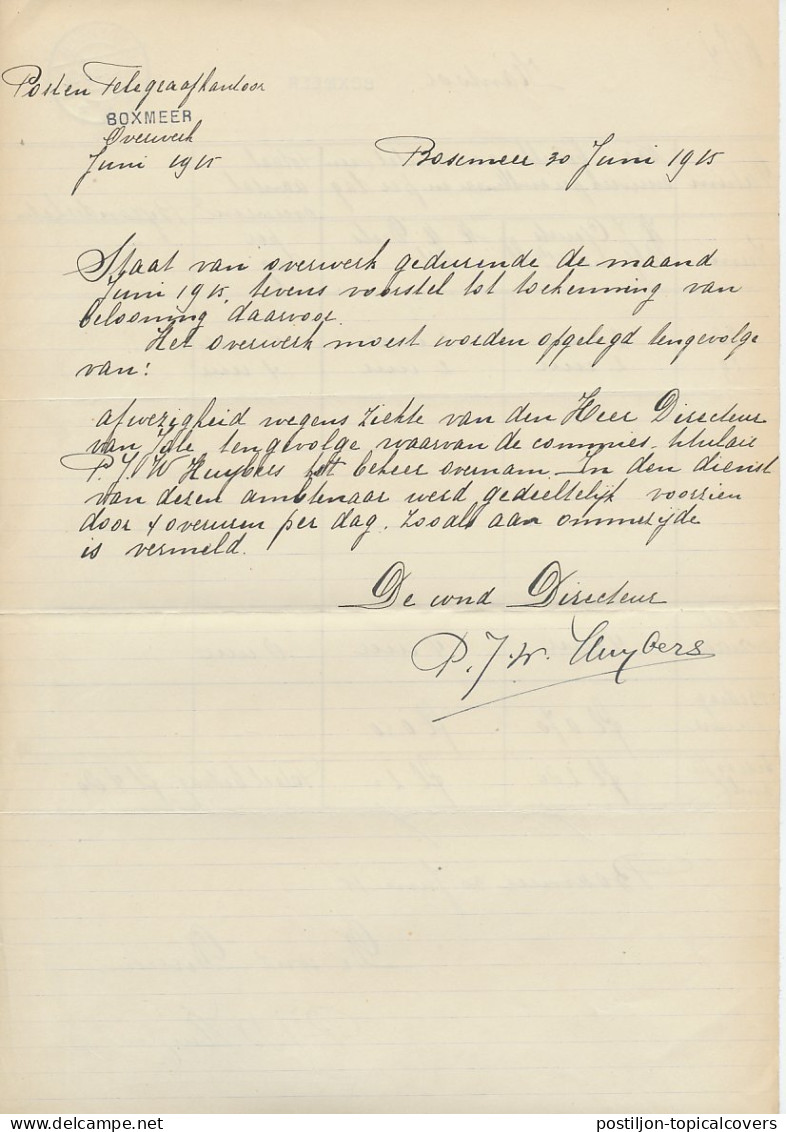 Post en Telegraafkantoor
BOXMEER
Overwerk
Juni 1915
Boxmeer 30 Juni 1915
Staat van overwerk gedurende de maand
Juni 1915, tevens voorstel tot toekenning van
belooning daarvoor.
Het overwerk moest worden opgelegd tengevolge
van:
afwezigheid wegens ziekte van den Heer Directeur
van tengevolge waarvan de commies-titulair
P. J. W Huybers het beheer overnam. In den dienst
van dezen ambtenaar werd gedeeltelijk voorzien
door 4 overuren per dag, zooals aan ommezijde
is vermeld.
De wnd Directeur
P. J. W. Huybers
postiljon-topicalcovers